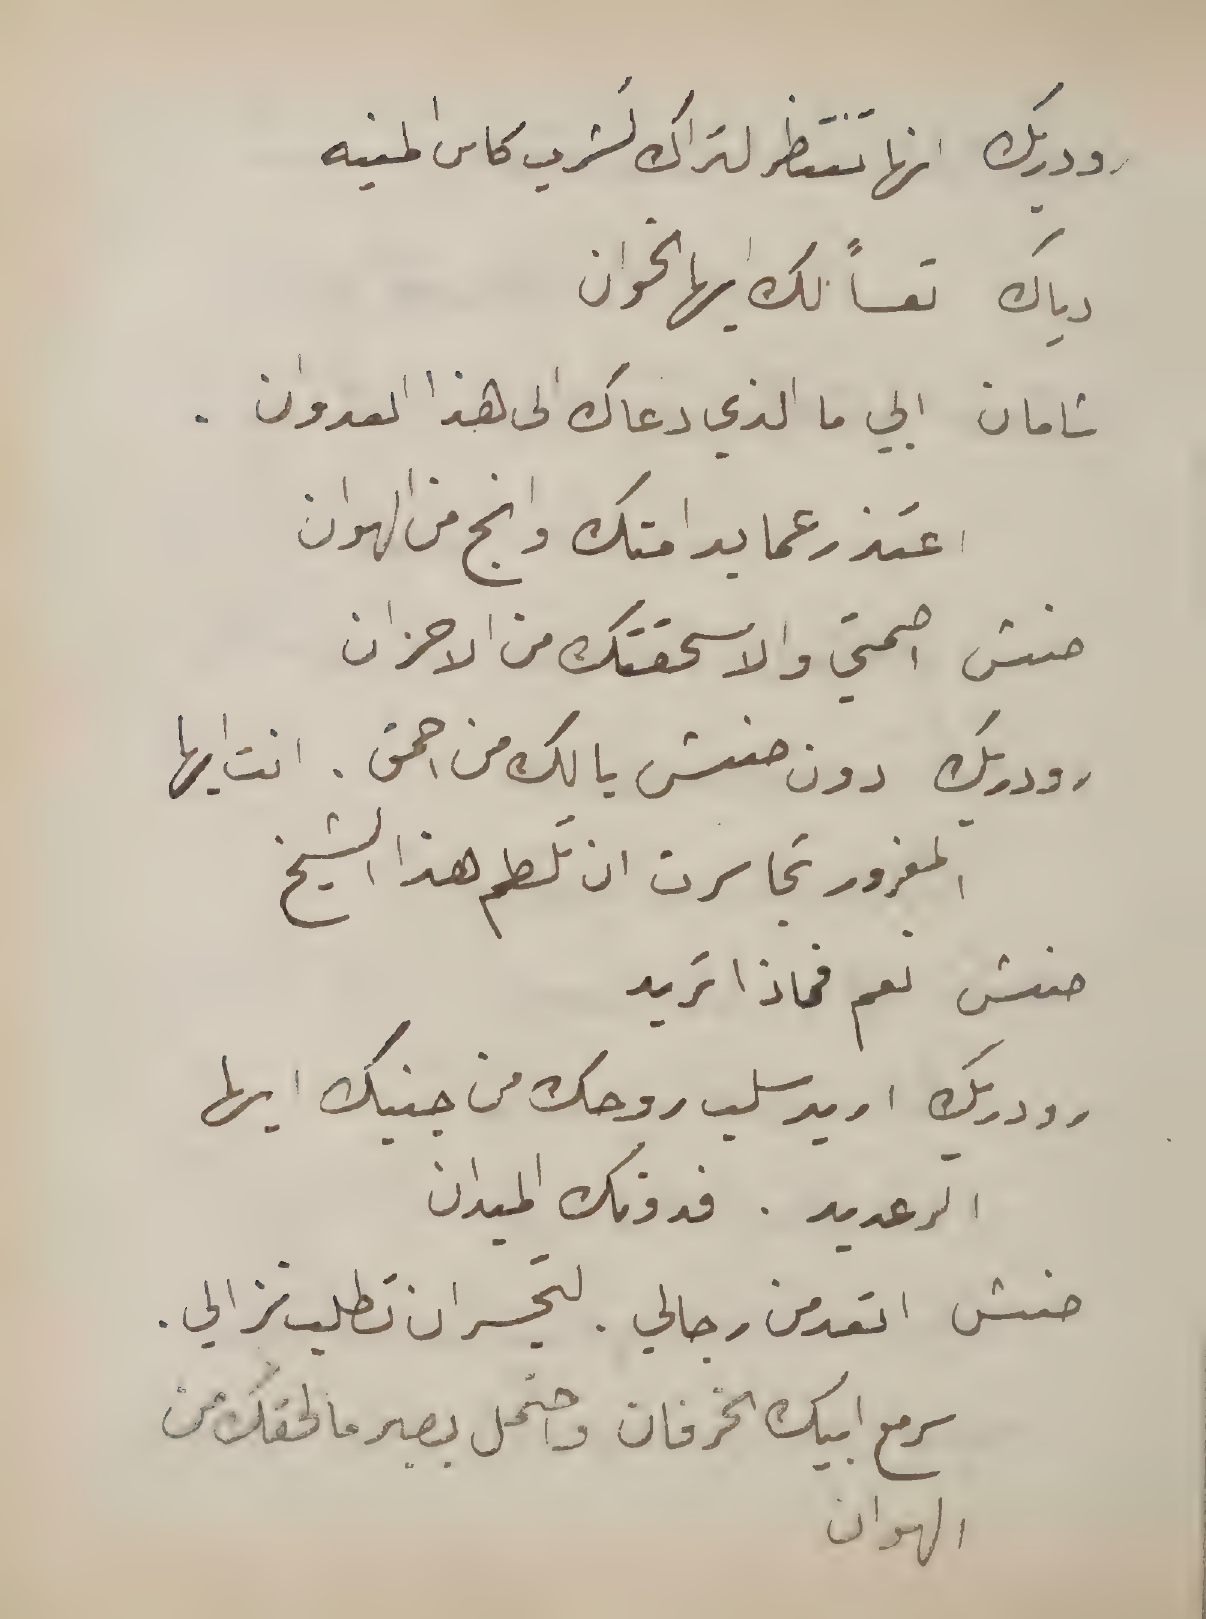 رودريك انها تنتظر لتراك تشرب كاس المنيه
دياك تعساً لك ايها الخوان
شامان ابي ما الذي دعاك الى هذا العدوان .
اعتذر عما بدا منك وانج من الهوان
صنش اصمتي والا سحقتك من الاحزان
رودريك دون صنش يا لك من احمق . انت ايها
المغرور تجاسرت ان تلطم هذا الشيخ
صنش نعم فماذا تريد
رودريك اريد سلب روحك من جنبيك ايها
الرعديد . فدونك الميدان
صنش اتعد من رجالي . لتجسر ان تطلب نزالي .
سر مع ابيك الخرفان واحتمل بصبر ما لحقك من
الهوان